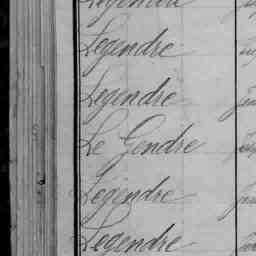 Legendre
Legendre
Legendre
Le Gendre
Legendre
Legendre